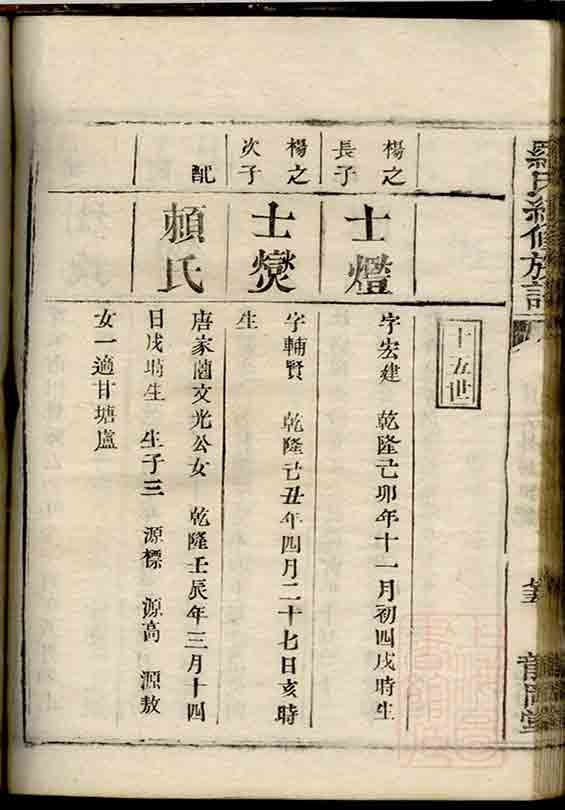 十五世
楊之
長子
士燈
字宏建 乾隆己卯年十一月初四戌時生
楊之
次子
士爕
字輔賢 乾隆己丑年四月二十七日亥時
生
配
賴氏
唐家蘭文光公女 乾隆壬辰年三月十四
日戌時生 生子三 源標 源高 源敖
女一適甘塘盧